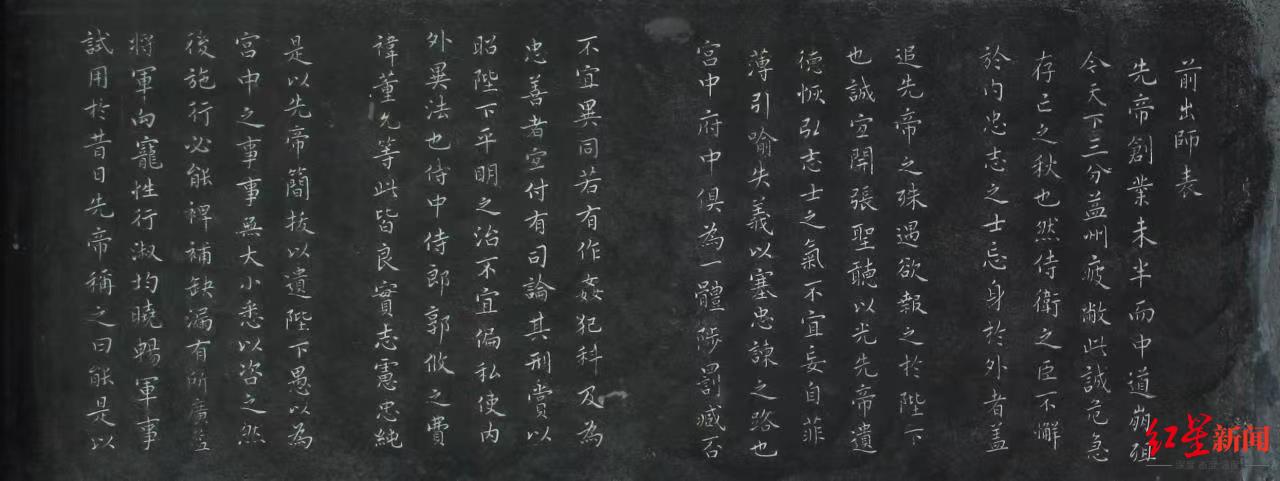 前出師表
先帝創業未半而中道崩殂
今天下三分益州疲敝此誠危急
存亡之秋也然侍衛之臣不懈
於内忠志之士忘身於外者蓋
追先帝之殊遇欲報之於陛下
也誠宜開張聖聽以光先帝遺
德恢弘志士之氣不宜妄自菲
薄引喻失義以塞忠諫之路也
宮中府中俱為一體陟罰臧否
不宜異同若有作姦犯科及為
忠善者宜付有司論其刑賞以
昭陛下平明之治不宜偏私使内
外異法也侍中侍郎郭攸之費
禕董允等此皆良實志慮忠純
是以先帝簡拔以遺陛下愚以為
宮中之事事無大小悉以咨之然
後施行必能裨補缺漏有所廣益
將軍向寵性行淑均曉暢軍事
試用於昔日先帝稱之曰能是以
红星新闻